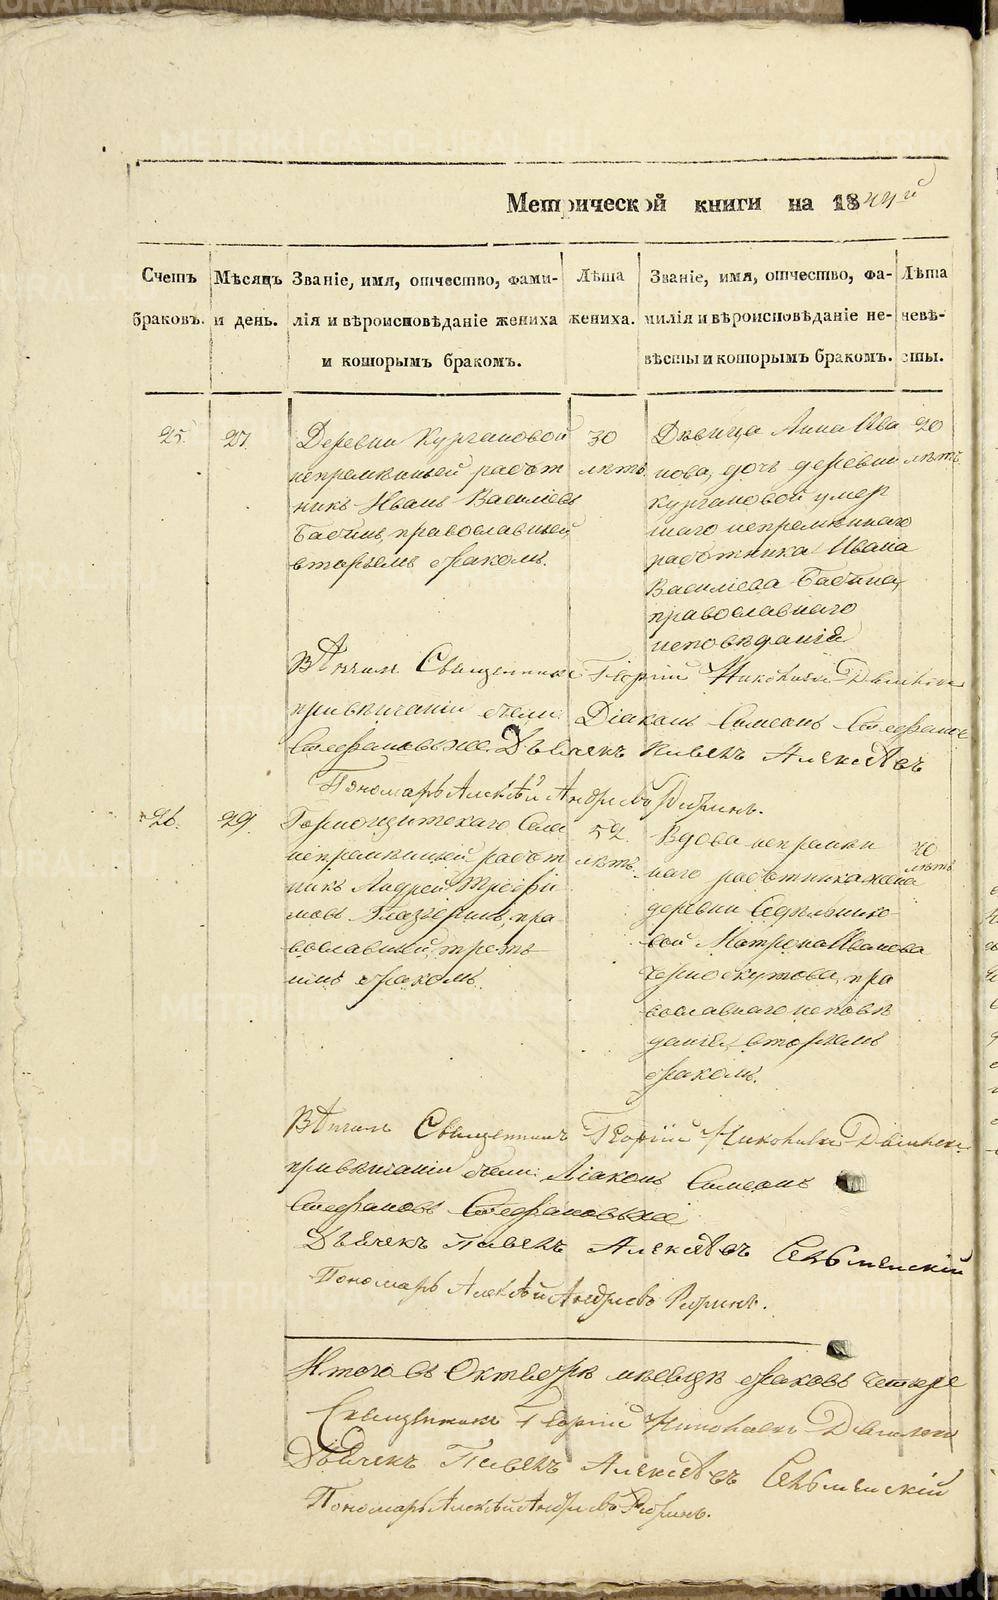 METRIKI.GASO-URAL.RU
Метрической книги на 1844й
Счетъ браковъ.
Мѣсяцъ и день.
Званіе, имя, отчество, фами-
лія и вѣроисповѣданіе жениха
и которымъ бракомъ.
Лѣта
жениха.
Званіе, имя, отчество, фа-
милія и вѣроисповѣданіе не-
вѣсты и которымъ бракомъ.
Лѣта
невѣ-
сты.
25.
27.
Деревни Кургановой
непремѣнный работ
никъ Иванъ Василіевъ
Бабинъ, православный
вторымъ бракомъ.
30
лѣтъ
Дѣвица Анна Ива
нова, дочь деревни
Кургановой умер
шаго непремѣннаго
работника Ивана
Василіева Бабина,
православнаго
исповѣданія
20
лѣтъ
Вѣнчалъ Священникъ Георгій Николаевъ
при вѣнчаніи были: Діаконъ Симеонъ Стефановъ
Стефановыхъ Дьячекъ Павелъ Алексѣевъ
Пономарь Алексѣй Андреевъ
26.
29.
Горнощитскаго Села
непремѣнный работ
никъ Андрей Трофи
мовъ Глазыринъ, пра
вославный, треть
имъ бракомъ.
52
лѣтъ.
Вдова непремѣн
наго работника жена
деревни Седельнико
вой Матрона Иванова
Черноскутова, пра
вославнаго исповѣ
данія, вторымъ
бракомъ.
40
лѣтъ
Вѣнчалъ Священникъ Георгій Николаевъ
при вѣнчаніи были: Діаконъ Симеонъ
Стефановъ Стефановыхъ
Дьячекъ Павелъ Алексѣевъ
Пономарь Алексѣй Андреевъ
Итого въ Октябрѣ мѣсяцѣ браковъ четыре
Священникъ Георгій Николаевъ
Дьячекъ Павелъ Алексѣевъ
Пономарь Алексѣй Андреевъ